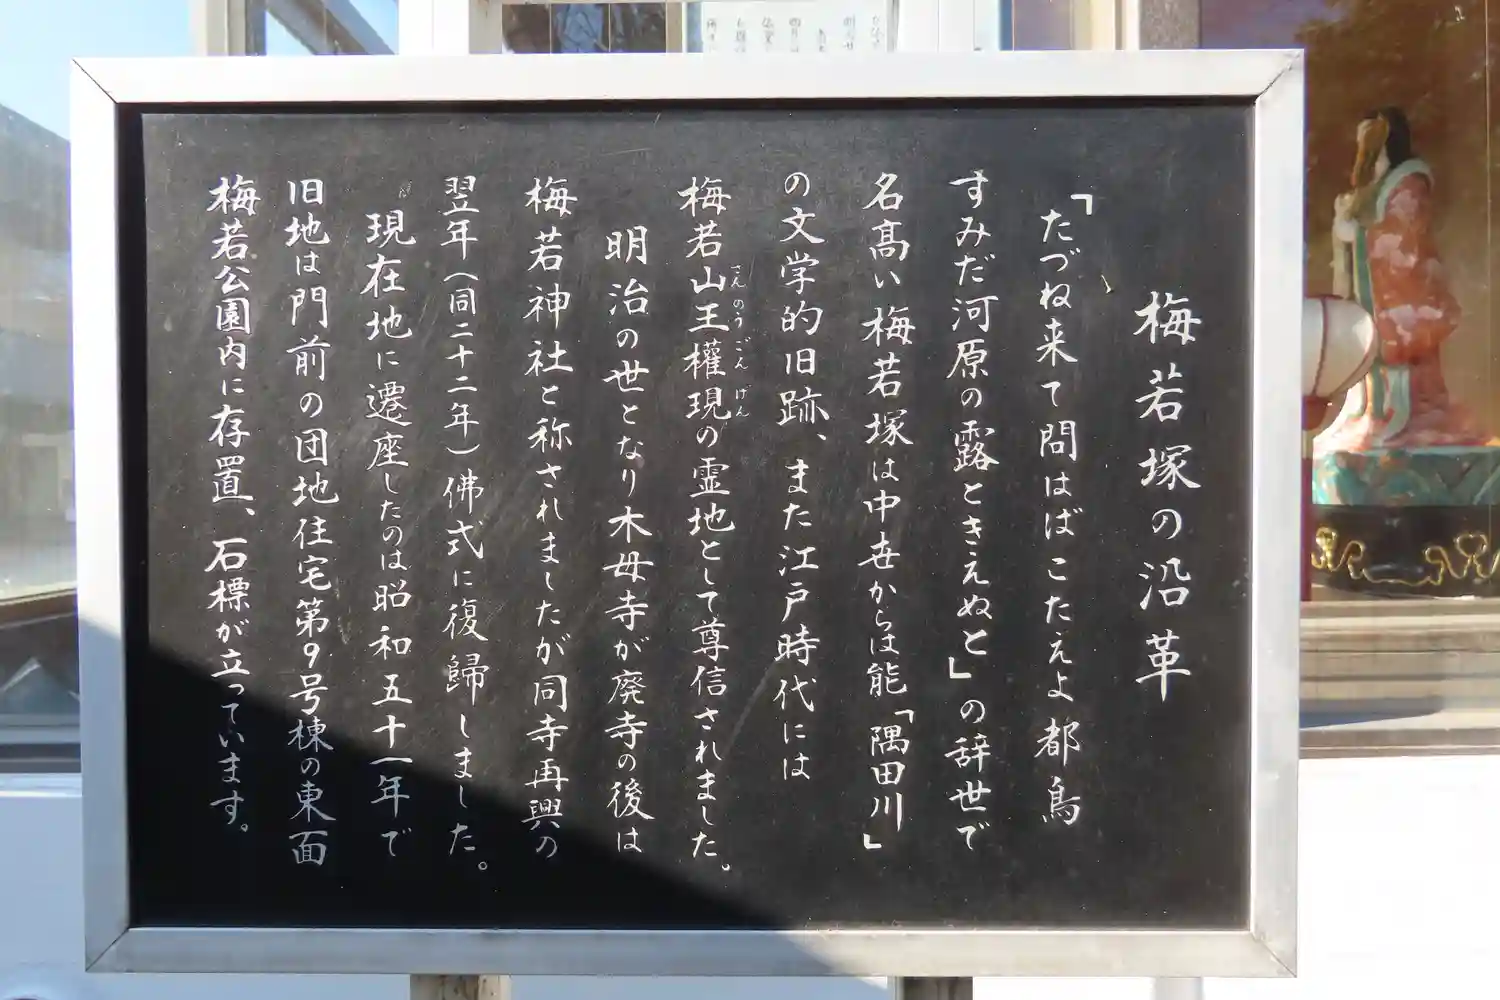 梅若塚の沿革
「たづね来て問はばこたえよ都鳥
すみだ河原の露ときえぬと」の辞世で
名髙い梅若塚は中世からは能「隅田川」
の文学的旧跡、また江戸時代には
梅若山王權現の霊地として尊信されました。
さんのうごんげん
明治の世となり木母寺が廃寺の後は
梅若神社と称されましたが同寺再興の
翌年(同二十二年)佛式に復歸しました。
現在地に遷座したのは昭和五十一年で
旧地は門前の団地住宅第9号棟の東面
梅若公園内に存置、石標が立っています。